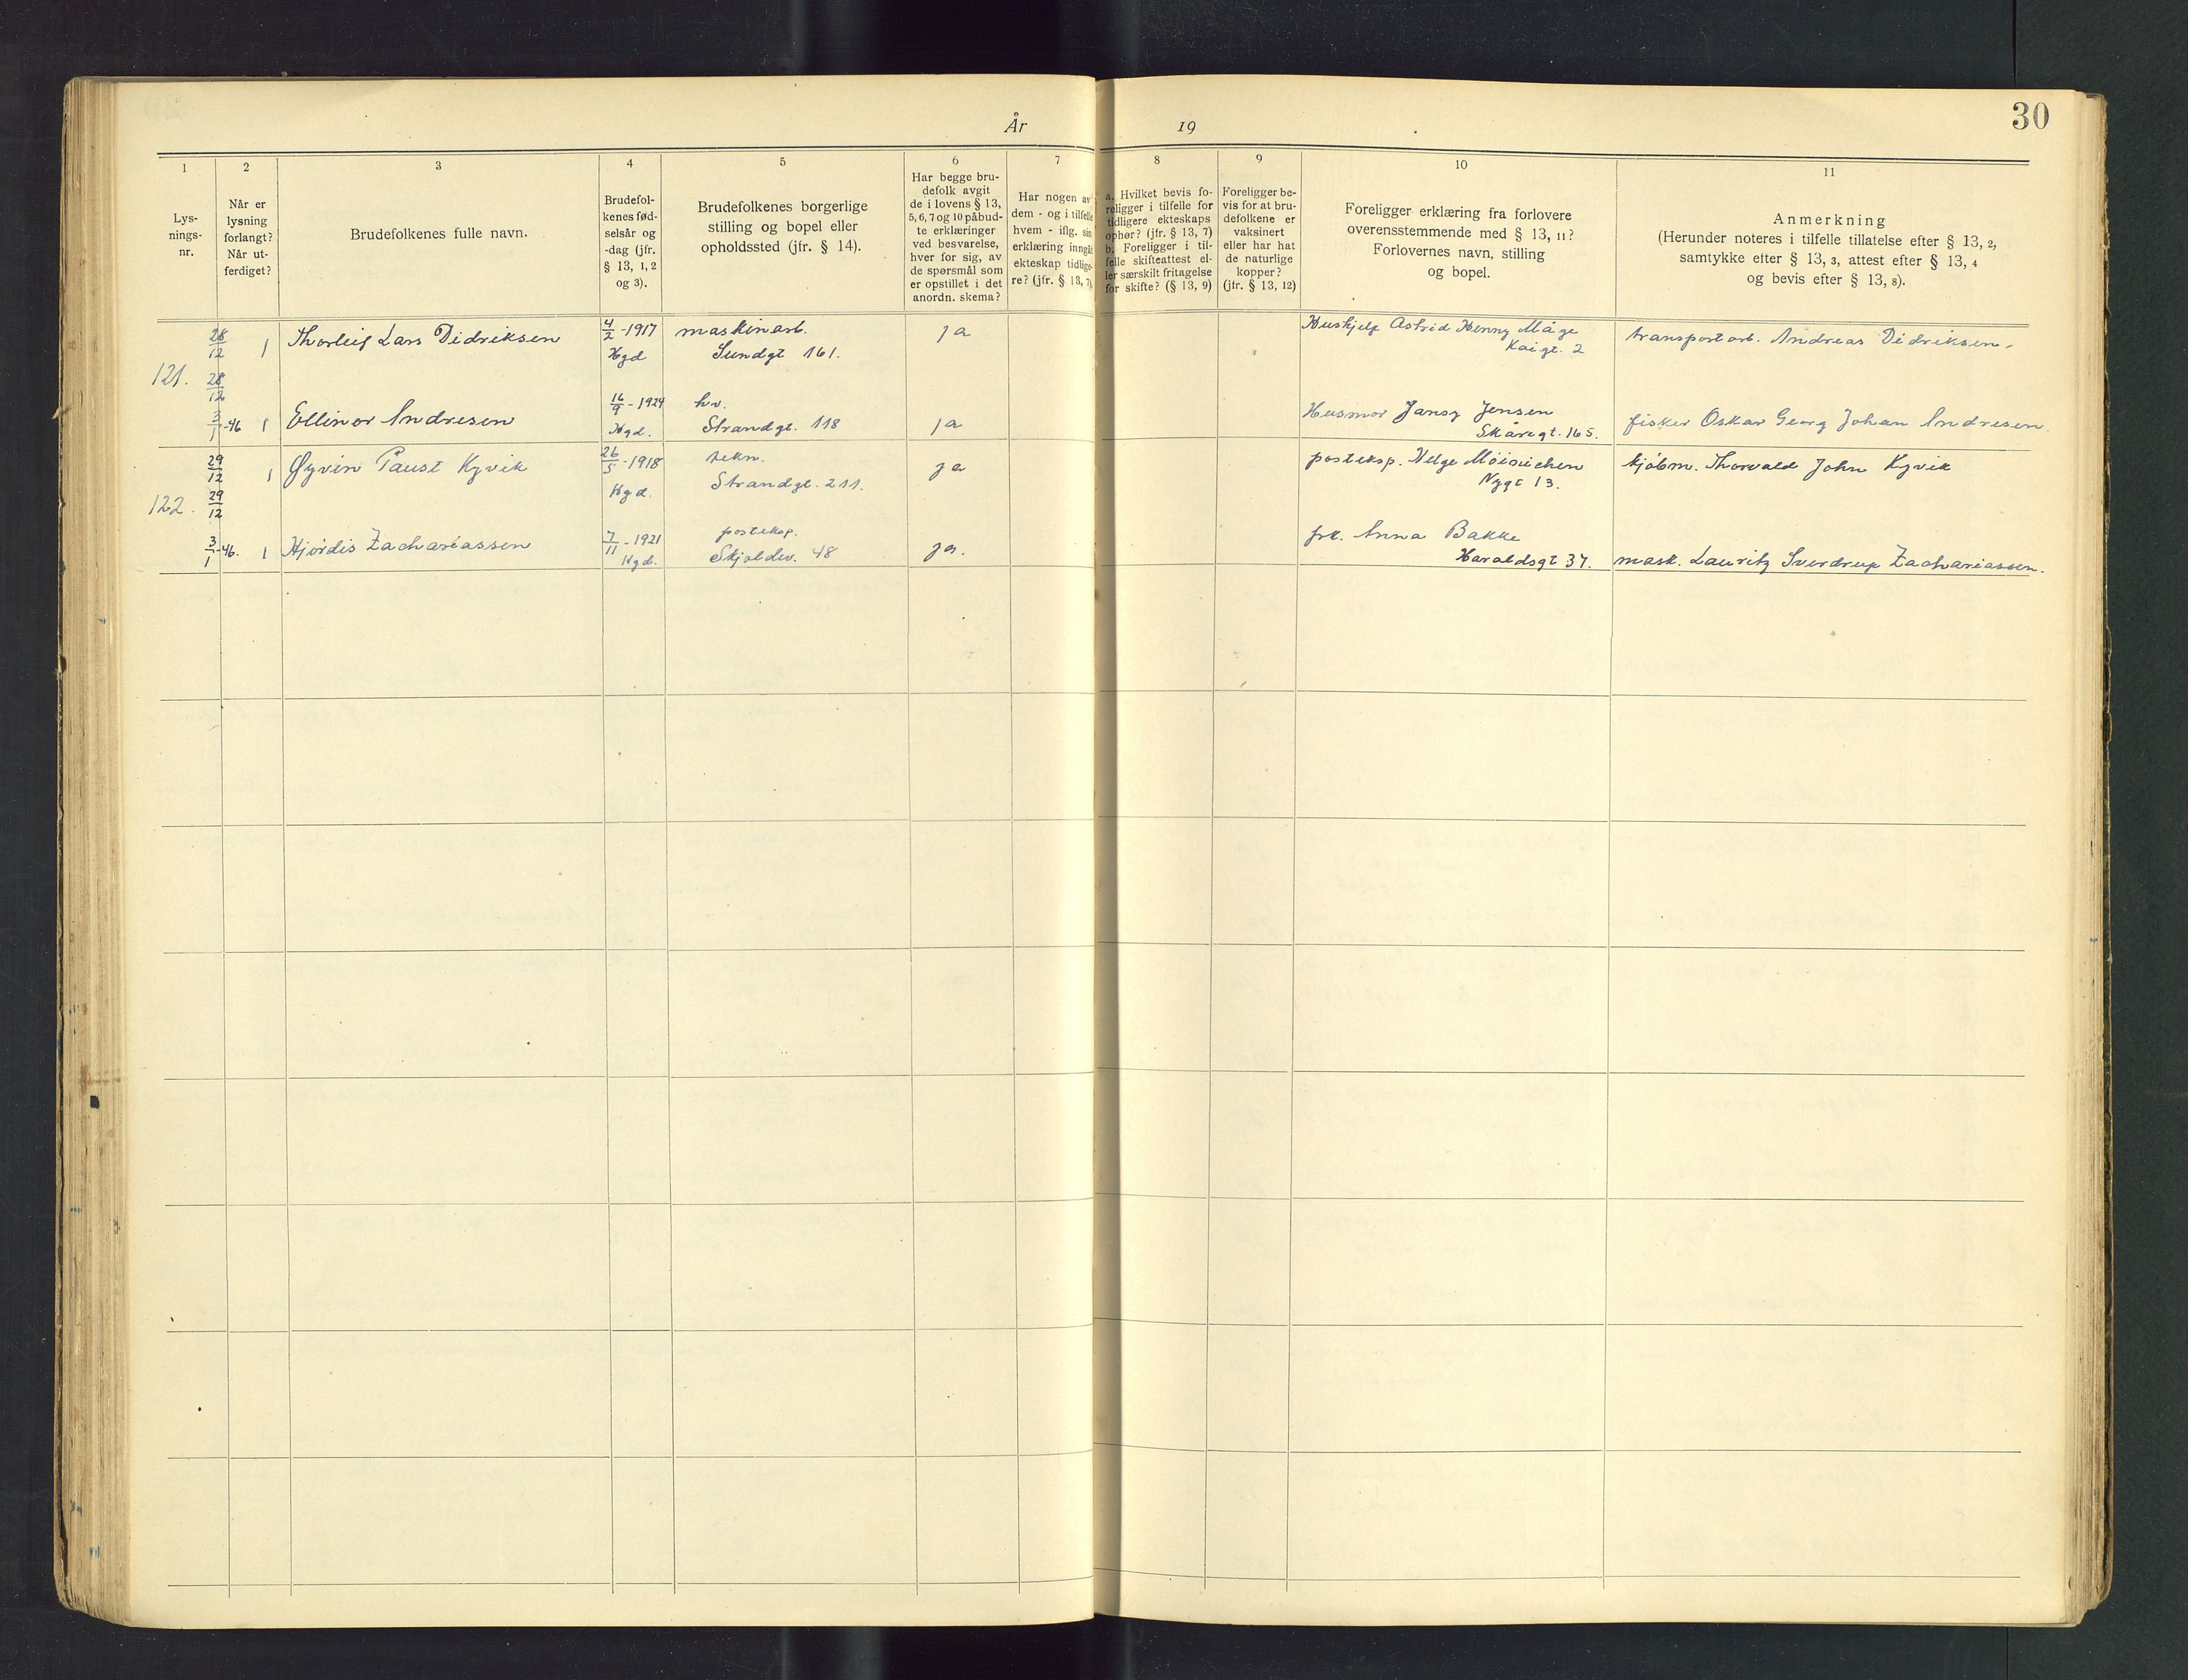 30
År 19
1
Lys-
nings-
nr.
2
Når er
lysning
forlangt?
Når ut-
ferdiget?
3
Brudefolkenes fulle navn.
4
Brudefol-
kenes fød-
selsår og
-dag (jfr.
§ 13, 1, 2
og 3).
5
Brudefolkenes borgerlige
stilling og bopel eller
opholdssted (jfr. § 14).
6
Har begge bru-
defolk avgit
de i lovens § 13,
5, 6, 7 og 10 påbud-
te erklæringer
ved besvarelse,
hver for sig, av
de spørsmål som
er opstillet i det
anordn. skema?
7
Har nogen av
dem - og i tilfelle
hvem - iflg. sin
erklæring inngåt
ekteskap tidlige-
re? (jfr. § 13, 7)
8
a. Hvilket bevis fo-
religger i tilfelle for
tidligere ekteskaps
ophør? (jfr. § 13, 7)
b. Foreligger i til-
felle skifteattest el-
ler særskilt fritagelse
for skifte? (§ 13, 9)
9
Foreligger be-
vis for at bru-
defolkene er
vaksinert
eller har hat
de naturlige
kopper?
(jfr. § 13, 12)
10
Foreligger erklæring fra forlovere
overensstemmende med § 13, 11?
Forlovernes navn, stilling
og bopel.
11
Anmerkning
(Herunder noteres i tilfelle tillatelse efter § 13, 2,
samtykke efter § 13, 3, attest efter § 13, 4
og bevis efter § 13, 8).
121.
28/12 1 Thorleif Lars Didriksen 4/2 -1917 maskinarb. ja Hushjelp Astrid Henny Måge transportarb. Andreas Didriksen.
Hgd Sundgt 161. Kaigt. 2
28/12
16/9 - 1924 hv. Husmor Jansy Jensen
3/1 -46 1 Ellinor Andresen Hgd. Strandgt. 118 ja Skåregt. 165. fisker Oskar Georg Johan Andresen.
122.
29/12 1 Øyvin Paust Kyvik 26/5 -1918 tekn. ja posteksp. Helge kjøbm. Thorvald John Kyvik
Hgd. Strandgt. 211. Nygt 13.
29/12
7/11 - 1921 posteksp. frk. Anna Bakke
3/1 -46. 1 Hjørdis Zachariassen Hgd. Skjoldev. 48 ja. Haraldsgt 37. mask. Lauritz Sverdrup Zachariassen.